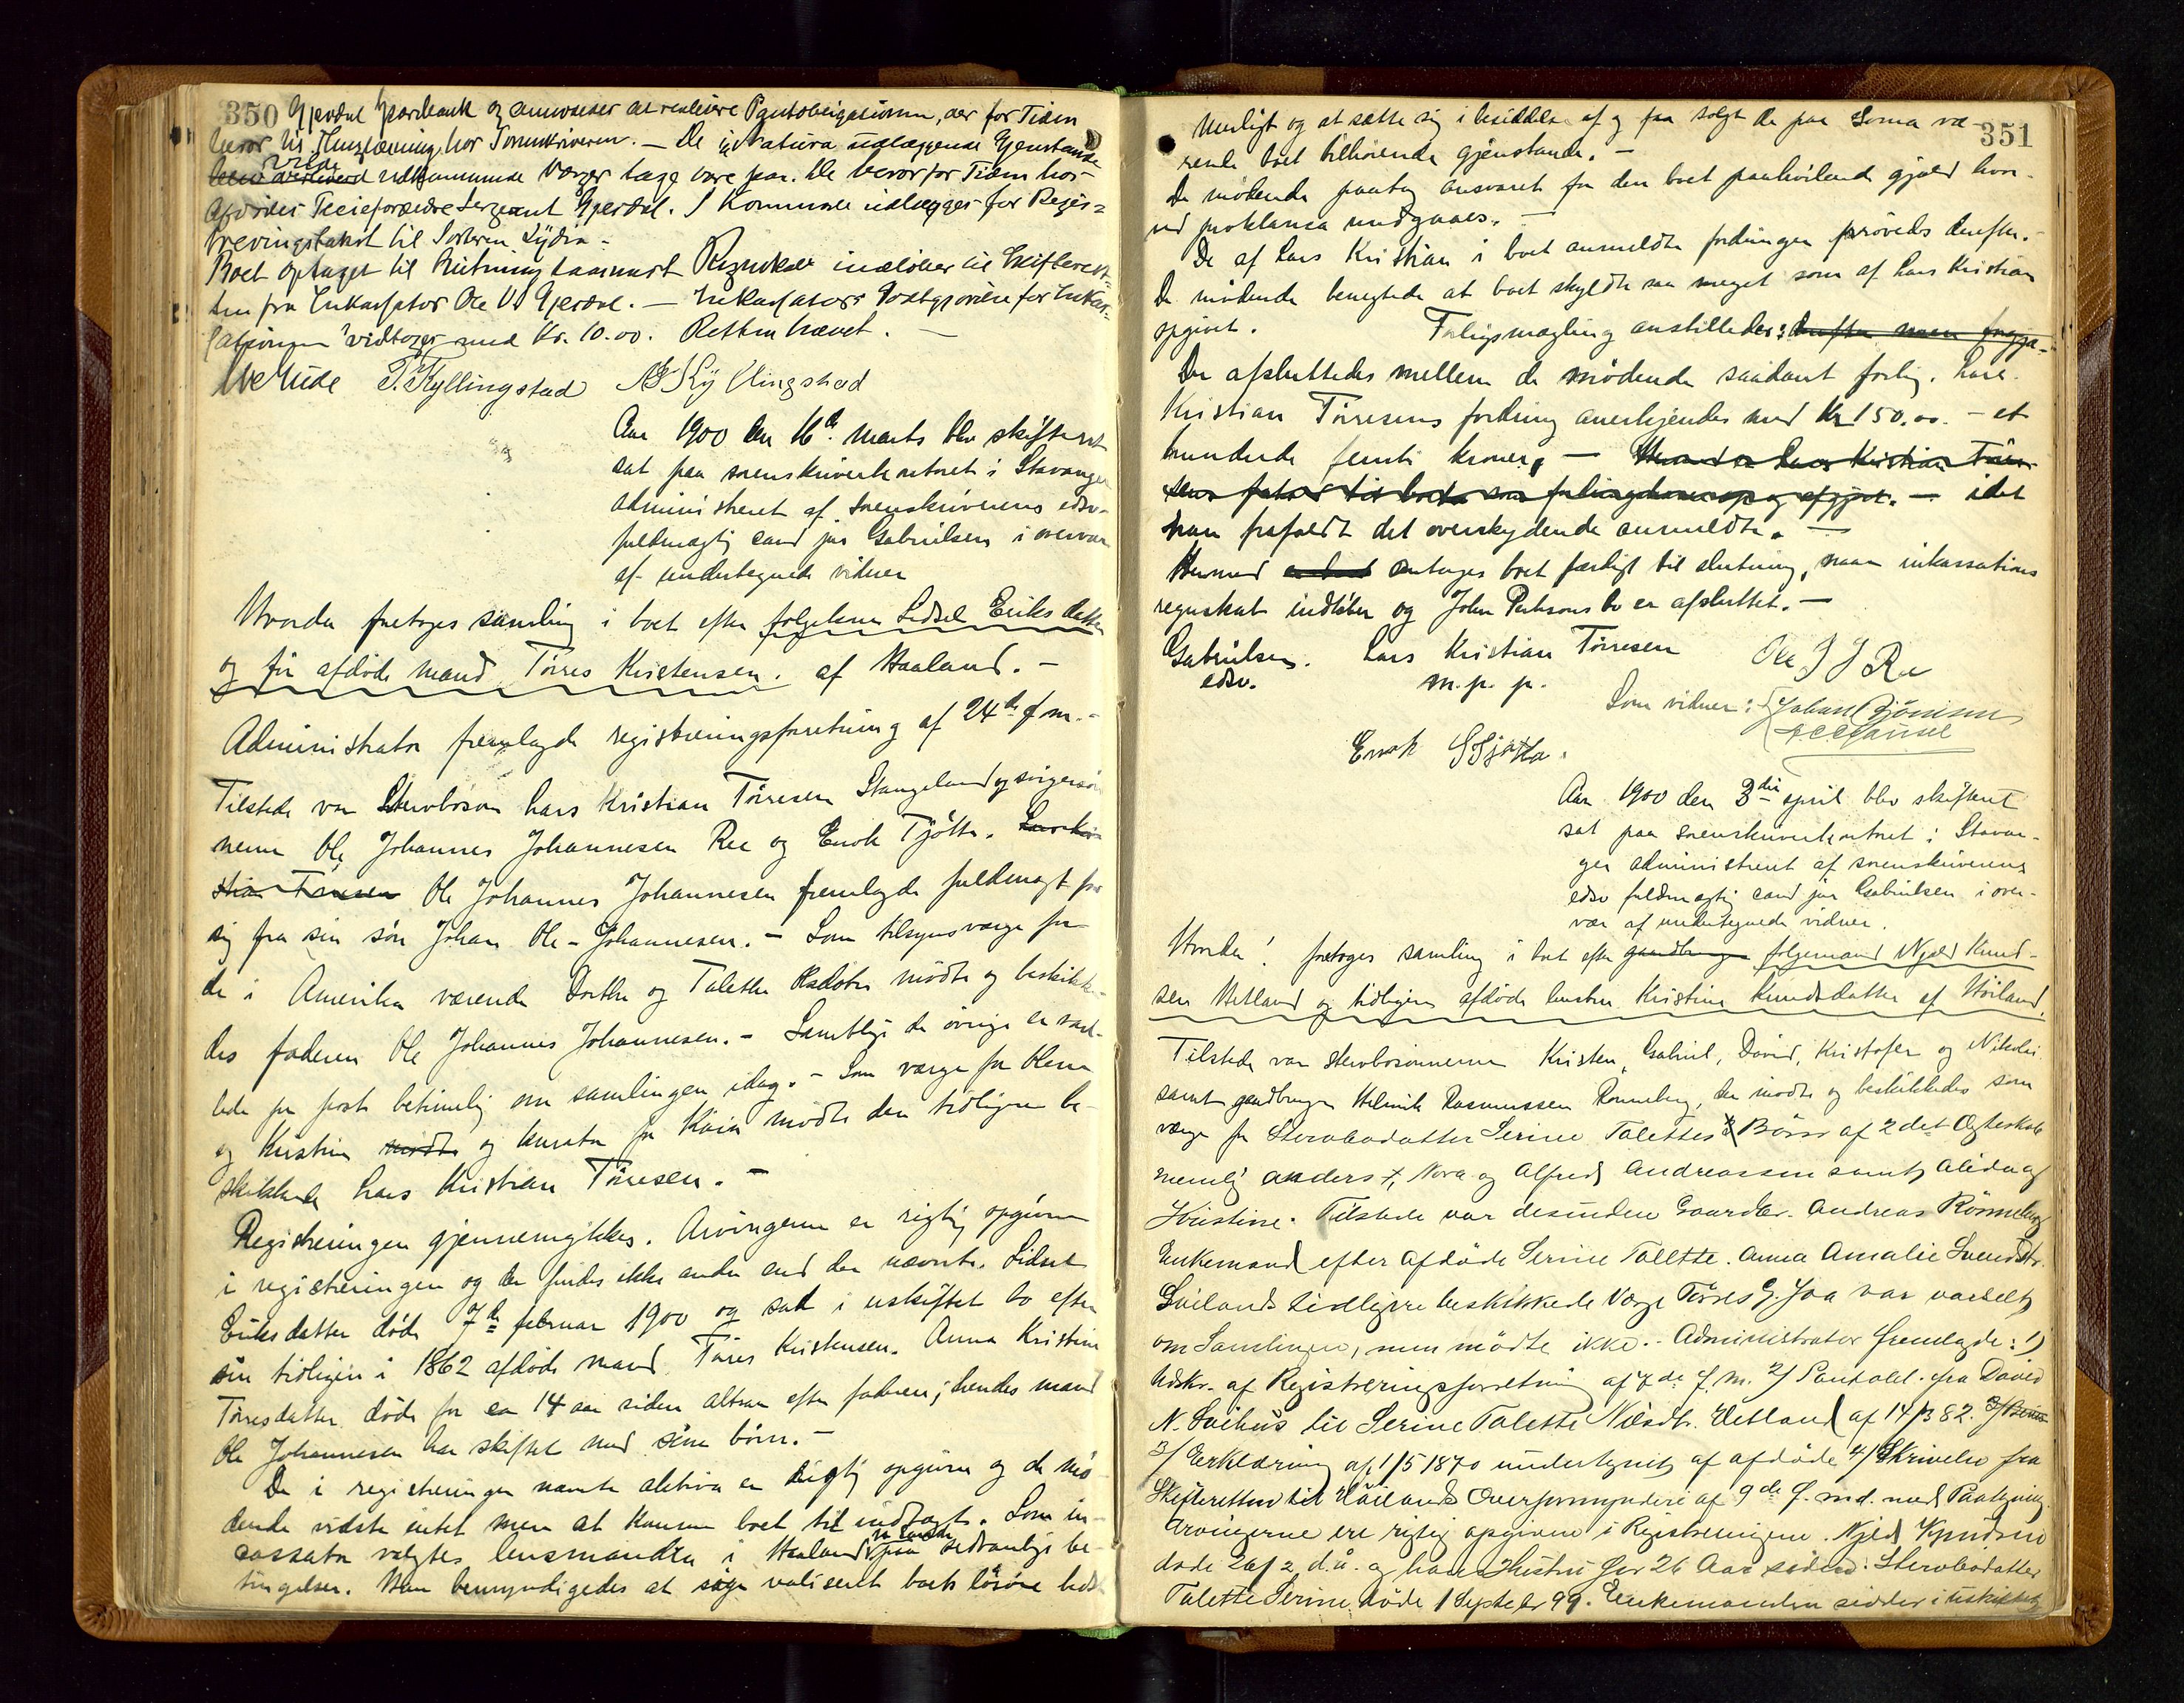 350
Gjerdal Sparebank og anmodes at realisere Pantobligationen, der for Tiden
beror til Thinglæsning hos Sorenskriveren. — De in Natura udlæggende Gjenstande
vilde
udkommende Værger tage vare paa. De beror for Tiden hos
Afdødes Pleieforældre Sergeant Gjerdal. I Kommune udlægges for Regis=
treringstakst til Søsteren Lydia. -
Boet optaget til Slutning saasnart Regnskab indløber til Skifteret=
ten fra Inkassator Ole V. Gjerdal. — Inkassators Godtgjørelse for Inkas=
sationen vedtoges med Kr. 10.00. Retten hævet. —
T. Kyllingstad
Kyllingstad
Aar 1900 den 16de marts blev skifteret
sat paa sorenskriverkontoret i Stavanger
administreret af sorenskriverens edsv.
fuldmægtig cand jur Gabrielsen i overvær
af undertegnede vidner
Hvorda foretoges samling i boet efter følgekone Sidsel Eriksdatter
og før afdøde mand Tørres Kristensen. af Haaland. —
Administrator fremlagde registreringsforretning af 24de f.m. -
Tilstede var Stervbosøn Lars Kristian Tørresen Stangeland og svigersøn
nerne Ole Johannes Johannesen Ree og Enok Tjøtta. Lars Kri
stian Tørresen Ole Johannes Johannesen fremlagde fuldmagt for
sig fra sin søn Johan Ole-Johannesen. — Som tilsynsværge for
de i Amerika værende Dorthe og Talette Olsdøtre mødte og beskikke-
des faderen Ole Johannes Johannesen. — Samtlige de øvrige er vars-
lede pr post betimelig om samlingen idag. — Som værge for Olene
og Kristine mødte og kurator for Kaia mødte den tidligere be-
skikkede Lars Kristian Tørresen. —
Registreringen gjennemgikkes. Arvingerne er rigtig opgivne
i registreringen og der findes ikke andre end der nævnte. Sidsel
Eriksdatter døde 7de februar 1900 og sad i uskiftet bo efter
sin tidligere i 1862 afdøde mand Tøres Kristensen. Anna Kristine
Tørresdatter døde for ca 14 aar siden altsaa efter faderen; hendes mand
Ole Johannesen har skiftet med sine børn. —
De i registreringen nævnte aktiva er rigtig opgivne og de mø-
dende vidste intet mere at kunne boet til indtægt. Som in-
cassator valgtes lensmanden i Haaland paa sedvanlige be-
tingelser. Han bemyndigedes at søge realiseret boets løsøre bedst
351
muligt og at sætte sig i besiddelse af og faa solgt de paa Soma væ-
rende boet tilhørende gjenstande. —
De mødende paatog ansvaret for den boet paahvilende gjæld hvor-
ved proklama undgaaes. —
De af Lars Kristian i boet anmeldte fordringer prøvedes derefter. -
De mødende benegtede at boet skyldte saa meget som af Lars Kristian
opgivet. Forligsmægling anstilledes: derefter men forgjæ-
Der afsluttedes mellem de mødende saadant forlig. Lars
Kristian Tørresens fordring anerkjendes med Kr 150.00. — et
hundrede femti kroner, — Hvad er Lars Kristian Tørre
sens fordring til boet — idet
han frafaldt det overskydende anmeldte. —
Hermed er boet antages boet færdigt til slutning, naar inkassations
regnskab indløber og John Pedersens bo er afsluttet. —
Gabrielsen. Lars Kristian Tørresen Ole J J Re
edsv. m. p. p.
Som vidner: Johan Bjørnsen
Enok Tjøtta.
Aar 1900 den 3die april blev skifteret
sat paa sorenskriverkontoret i Stavan-
ger administreret af sorenskriverens
edsv fuldmægtig cand jur Gabrielsen i over-
vær af undertegnede vidner.
Hvorda! foretoges samling i boet efter gaardbruger følgemand Njeld Knud-
sen Hetland og tidligere afdøde hustru Kristine Knudsdatter af Høiland.
Tilstede var stervbosønnerne Kristen, Gabriel, David, Kristofer og Nikolai
samt gaardbruger Helmik Rasmussen Rønneberg, der mødte og beskikkedes som
værge for Stervbodatter Serine Talettes Børn af 2det Ægteskab
nemlig Anders, Nora og Alfred Andreassen samt Alida og
Kristine. Tilstede var desuden Gaardbr. Andreas Rønneberg
Enkemand efter afdøde Serine Talette. Anna Amalie Svendsdtr.
Sviland tidligere beskikkede Værge Tørres G. Joa var varselet
om Samlingen, men mødte ikke. - Administrator fremlagde: 1)
Udskr. af Registreringsforretning af 7de f.m. 2/ Pantobl. fra David
N. Svihus til Serine Talette Njeldtr. Hetland af 14/3 82.
3/ Erklæring af 1/5 1870 undertegnet af afdøde 4/ Skrivelse fra
Skifteretten til Høilands Overformynderi af 9de f. md. med Paategning
Arvingerne ere rigtig opgivne i Registreringen. Njeld Knudsen
døde 20/2 d.å. og hans Hustru for 26 Aar siden. Stervbodatter
Talette Serine døde 1 Septebr 99. Enkemanden sidder i uskiftet